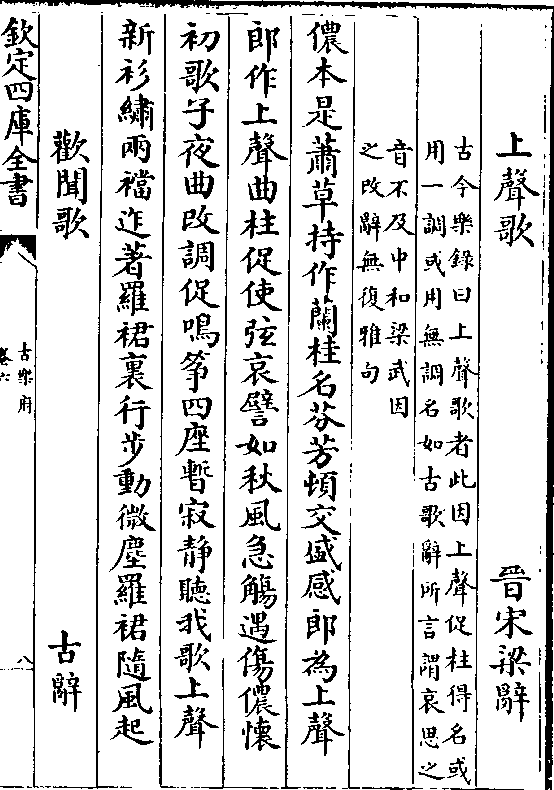 上聲歌 晉宋梁辭
古今樂錄曰上聲歌者此因上聲促柱得名或
用一調或用無調名如古歌辭所言謂哀思之
音不及中和梁武因
之改辭無復雅句
儂本是蕭草持作蘭桂名芬芳頓交盛感郎為上聲
郎作上聲曲柱促使弦哀譬如秋風急觴遇傷儂懷
初歌子夜曲改調促鳴筝四座暫寂靜聽我歌上聲
新衫繡兩襠迮著羅裙裏行步動微塵羅裙隨風起
歡聞歌 古辭
欽定四庫全書
古樂府
卷六
八